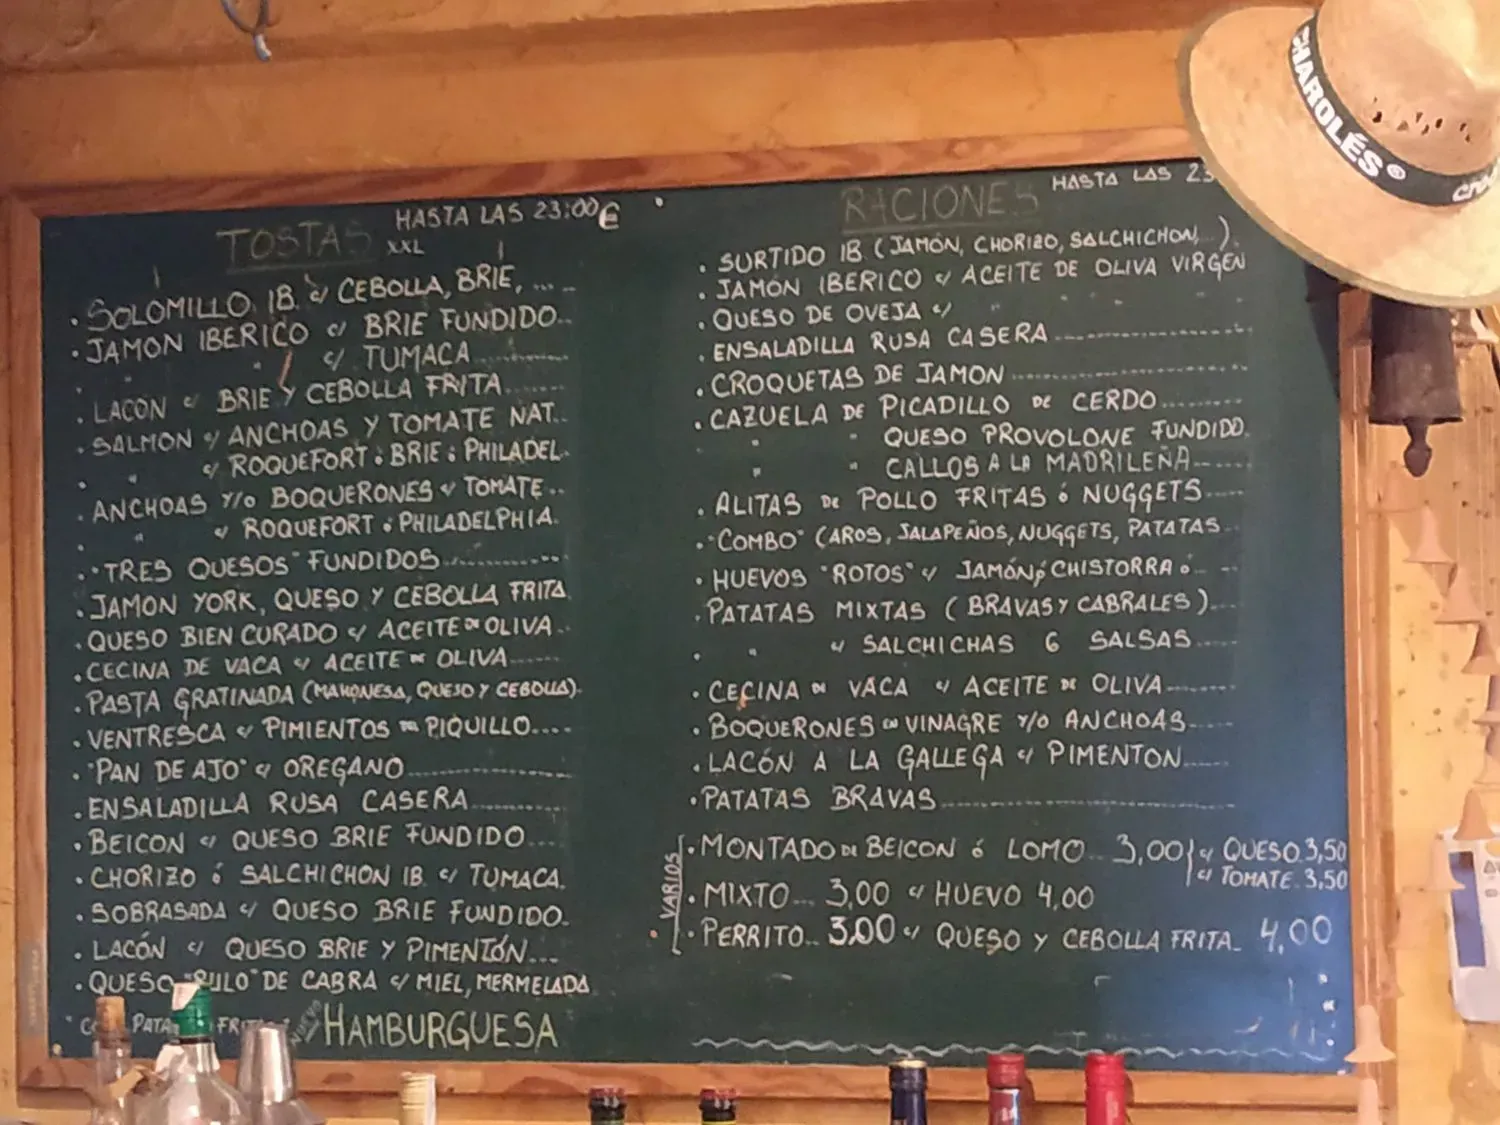 TOSTAS XXL HASTA LAS 23:00 €
· SOLOMILLO IB. c/ CEBOLLA, BRIE, ...
· JAMON IBERICO c/ BRIE FUNDIDO..
· " " c/ TUMACA
· LACON c/ BRIE Y CEBOLLA FRITA
· SALMON c/ ANCHOAS Y TOMATE NAT..
· " c/ ROQUEFORT ó BRIE ó PHILADEL.
· ANCHOAS Y/O BOQUERONES c/ TOMATE..
· " c/ ROQUEFORT ó PHILADELPHIA.
· "TRES QUESOS" FUNDIDOS
· JAMON YORK, QUESO Y CEBOLLA FRITA
· QUESO BIEN CURADO c/ ACEITE DE OLIVA..
· CECINA DE VACA c/ ACEITE DE OLIVA
· PASTA GRATINADA (MAHONESA, QUESO Y CEBOLLA).
· VENTRESCA c/ PIMIENTOS DEL PIQUILLO....
· "PAN DE AJO" c/ OREGANO
· ENSALADILLA RUSA CASERA
· BEICON c/ QUESO BRIE FUNDIDO....
· CHORIZO ó SALCHICHON IB. c/ TUMACA.
· SOBRASADA c/ QUESO BRIE FUNDIDO.
· LACÓN c/ QUESO BRIE Y PIMENTÓN...
· QUESO "RULO" DE CABRA c/ MIEL, MERMELADA
NUEVO HAMBURGUESA
RACIONES HASTA LAS 23
· SURTIDO IB (JAMÓN, CHORIZO, SALCHICHON, ).
· JAMÓN IBERICO c/ ACEITE DE OLIVA VIRGEN
· QUESO DE OVEJA c/ " " " "
· ENSALADILLA RUSA CASERA
· CROQUETAS DE JAMON
· CAZUELA DE PICADILLO DE CERDO
" " QUESO PROVOLONE FUNDIDO.
" " CALLOS A LA MADRILEÑA
· ALITAS DE POLLO FRITAS ó NUGGETS
· "COMBO" (AROS, JALAPEÑOS, NUGGETS, PATATAS
· HUEVOS "ROTOS" c/ JAMÓN, CHISTORRA ó
· PATATAS MIXTAS (BRAVAS Y CABRALES)
· " c/ SALCHICHAS 6 SALSAS
· CECINA DE VACA c/ ACEITE DE OLIVA
· BOQUERONES EN VINAGRE Y/O ANCHOAS
· LACÓN A LA GALLEGA c/ PIMENTON
· PATATAS BRAVAS
VARIOS
· MONTADO DE BEICON ó LOMO.. 3,00 c/ QUESO 3,50
c/ TOMATE. 3,50
· MIXTO... 3,00 c/ HUEVO 4,00
· PERRITO.. 3,00 c/ QUESO Y CEBOLLA FRITA 4,00
CHAROLÉS®